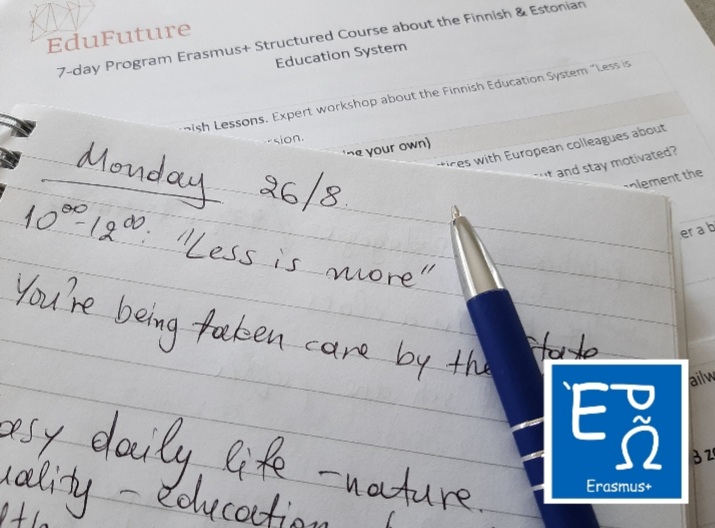 EduFuture
7-day Program Erasmus+ Structured Course about the Finnish & Estonian
Education System
Lessons. Expert workshop about the Finnish Education System "Less is
your own)
with European colleagues about
and stay motivated?
the
Monday 26/8.
10⁰⁰-12⁰⁰: "Less is more"
You're being taken care by the State
daily life - nature.
- education
Erasmus+